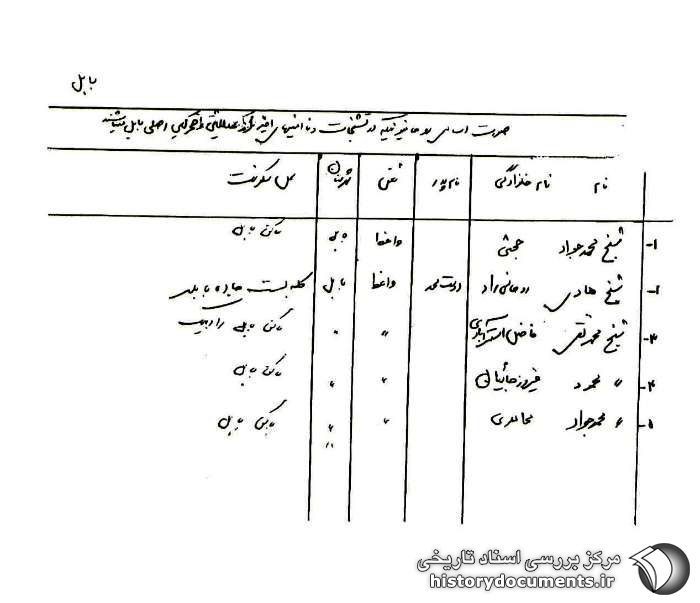 بابل
صورت اسامی روحانیونیکه در تشنجات و ناامنیهای اخیر اصلی بابل میباشند
نام نام خانوادگی نام پدر شغل شهرستان محل سکونت
۱- شیخ محمدجواد حجتی واعظ بابل ساکن بابل
۲- شیخ هادی روحانی راد واعظ بابل کله بست جاده بابلسر
۳- شیخ محمدتقی فاضل استرآبادی " " ساکن بابل
۴- " محمود فیروزجائیان " " ساکن بابل
۵- " محمدجواد " " ساکن بابل
مرکز بررسی اسناد تاریخی
historydocuments.ir